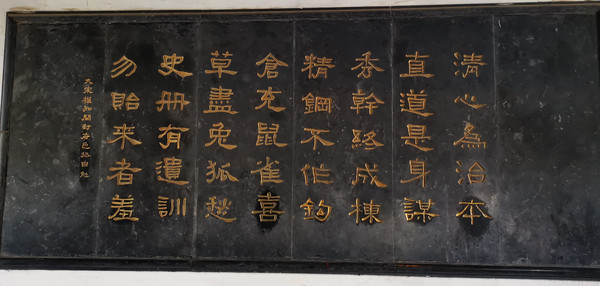 清心為治本
直道是身謀
秀幹終成棟
精鋼不作鈎
倉充鼠雀喜
草盡兔狐愁
史册有遺訓
勿貽来者羞
大宋權知開封